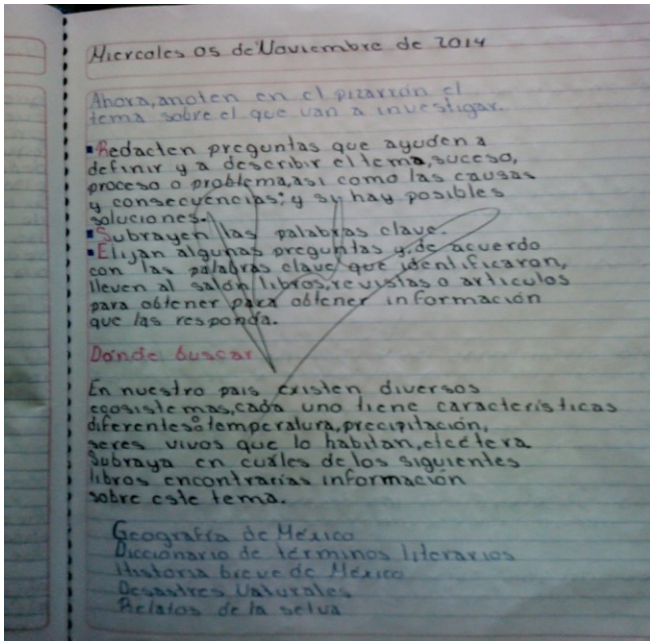 Miercoles 05 de Noviembre de 2014
Ahora, anoten en el pizarrón el
tema sobre el que van a investigar.
▪Redacten preguntas que ayuden a
definir y a describir el tema, suceso,
proceso o problema, asi como las causas
y consecuencias; y si hay posibles
soluciones.
▪Subrayen las palabras clave.
▪Elijan algunas preguntas y, de acuerdo
con las palabras clave que identificaron,
lleven al salón libros, revistas o articulos
para obtener para obtener información
que las responda.
Donde buscar
En nuestro pais existen diversos
ecosistemas, cada uno tiene características
diferentes: temperatura, precipitación,
seres vivos que lo habitan, etcétera
Subraya en cuáles de los siguientes
libros encontrarías información
sobre este tema.
Geografía de México
Diccionario de términos literarios
Historia breve de México
Desastres Naturales
Relatos de la selva